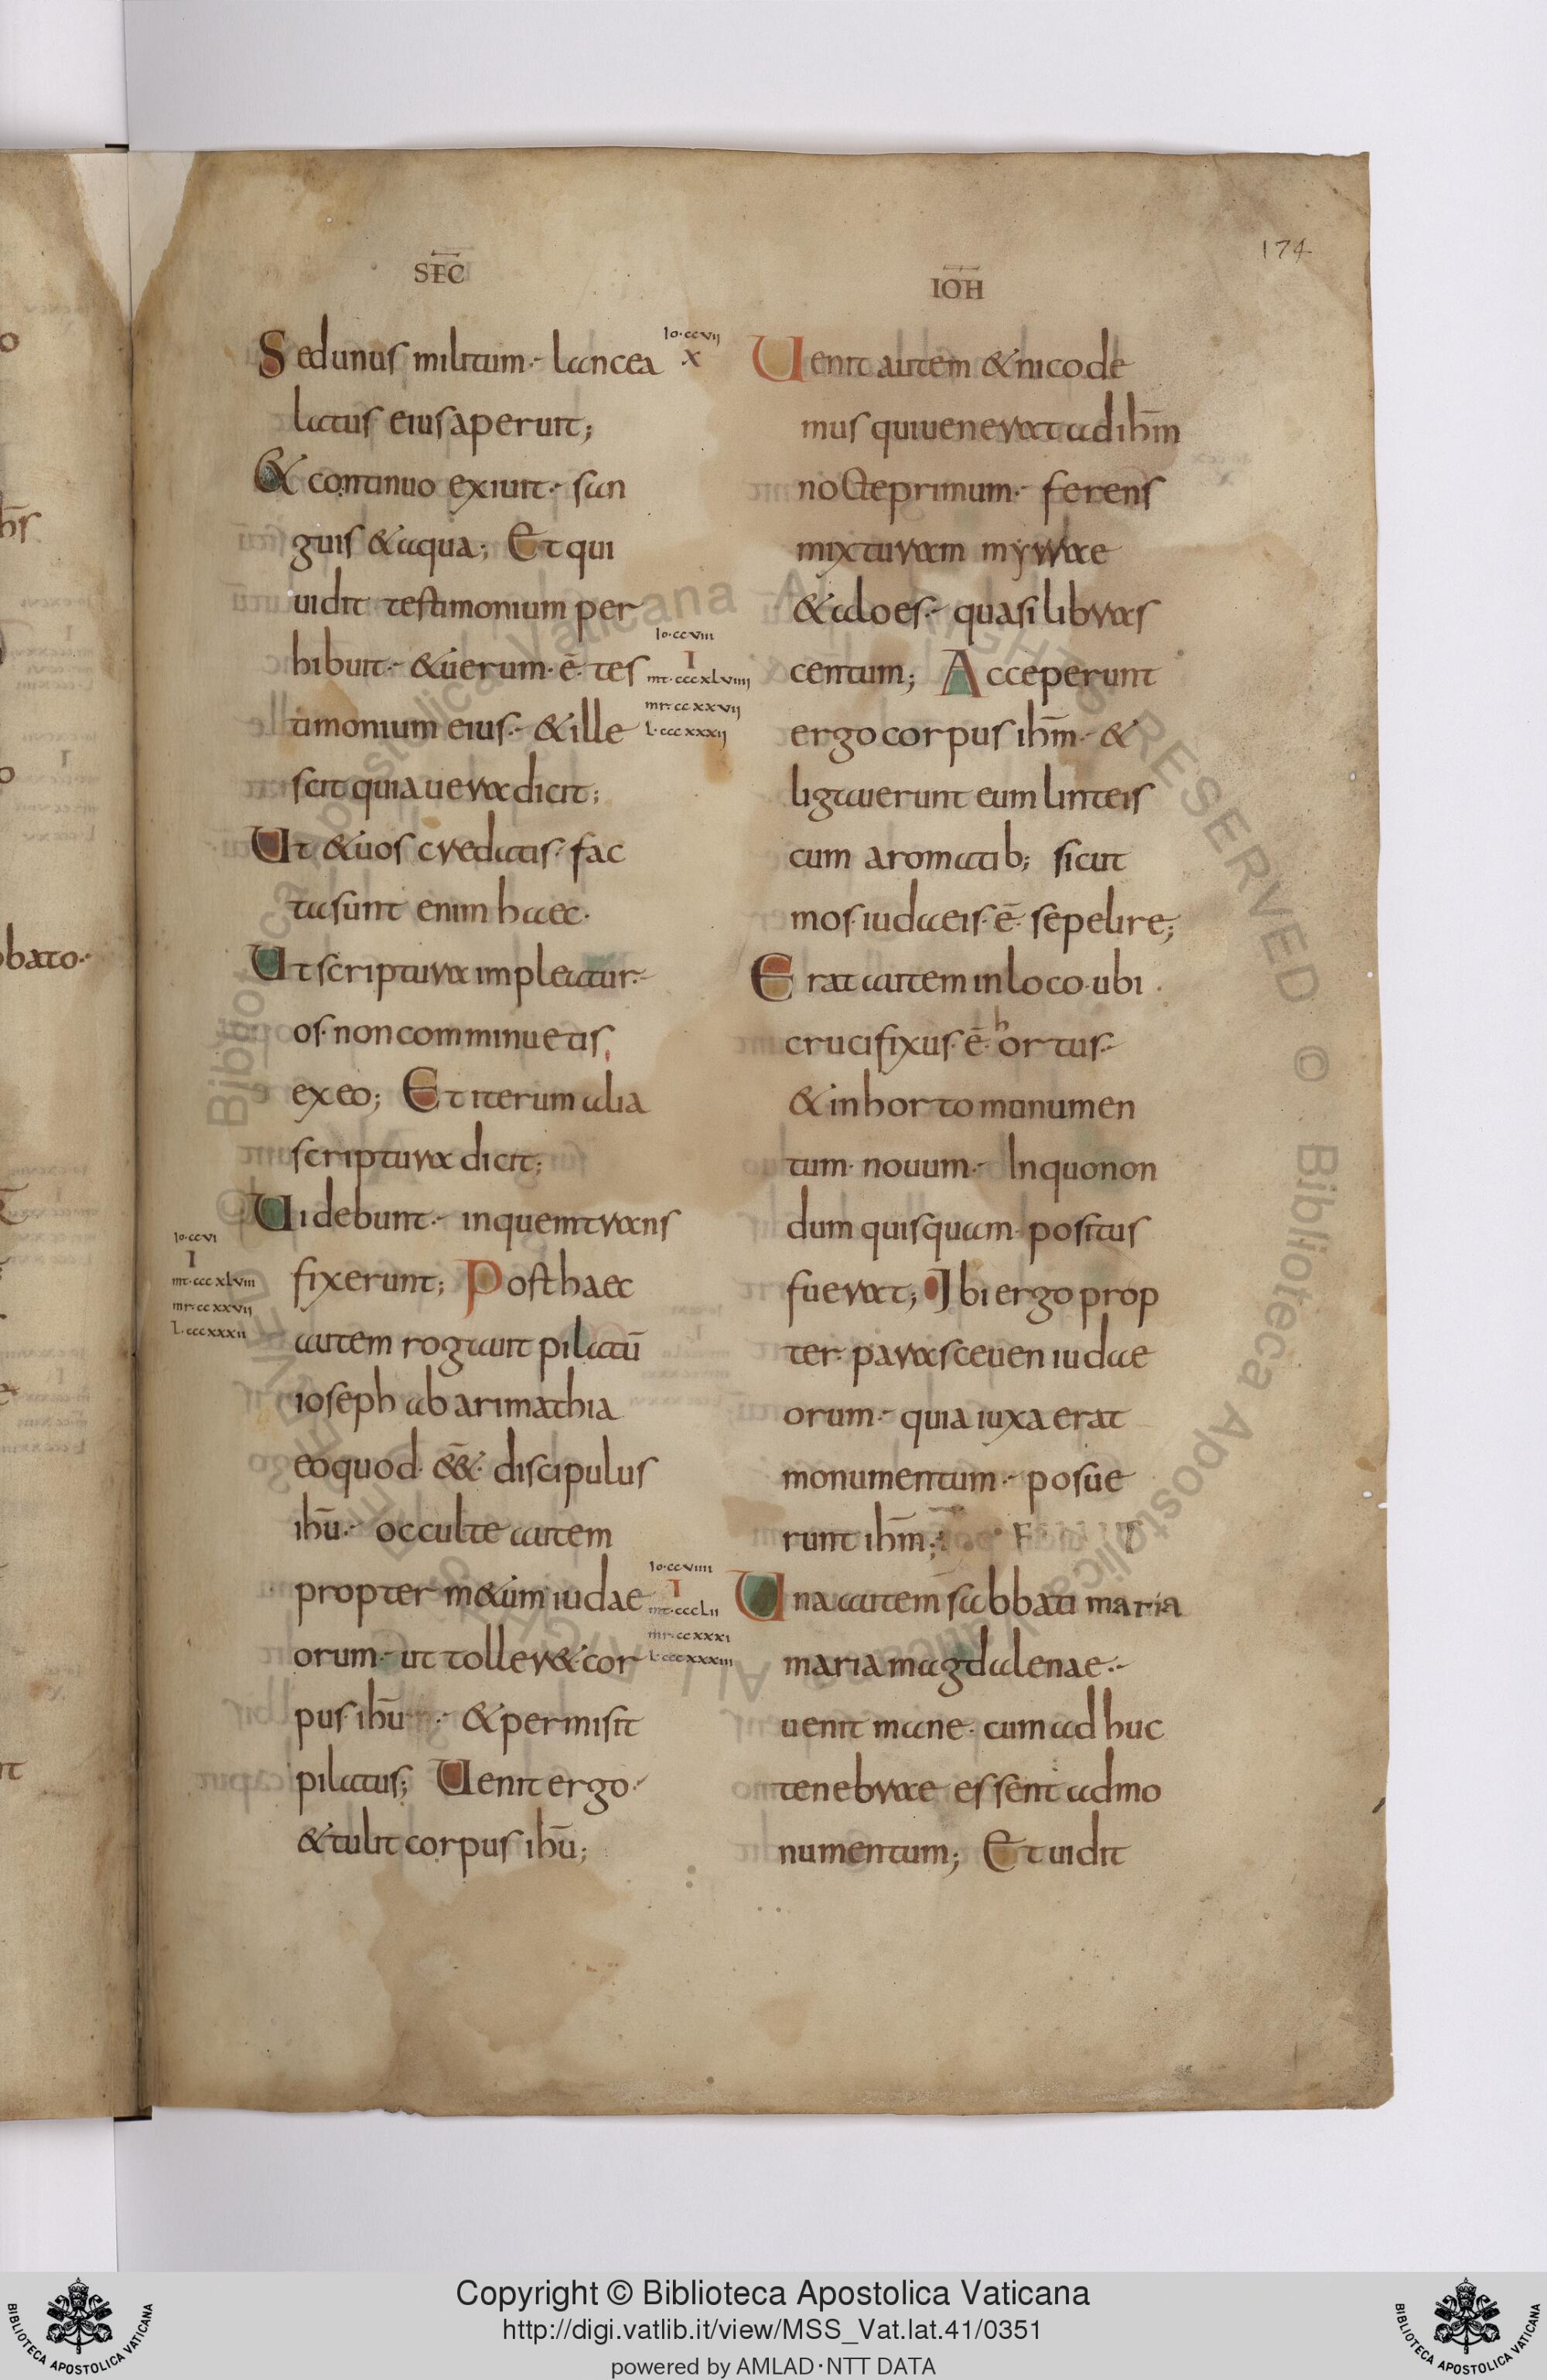 174
SEC̅
Sed unus militum·- lancea
latus eius aperuit;
& continuo exiuit·- san
guis & aqua; Et qui
uidit testimonium per
hibuit·- & uerum·ē· tes
timonium eius·- & ille
scit quia uera dicit;
Ut & uos credatis· fac
ta sunt enim haec·
Ut scriptura impleatur·-
os· non comminuetis
ex eo; Et iterum alia
scriptura dicit;
Uidebunt·- in quem trans
fixerunt; Post haec
autem rogauit pilatū
ioseph ab arimathia
eo quod· ēē· discipulus
ihū·- occulte autem
propter m&um iudae
orum·- ut toller& cor
pus· ihū ·- & permisit
pilatus; Uenit ergo·-
& tulit corpus ihū;
Io·ccvi
I
mt·cccxlviii
mr·ccxxvii
L·cccxxxii
Io·ccvii
X
Io·ccviii
I
mt·cccxlviiii
mr·ccxxvii
L·cccxxxii
Io·ccviiii
I
mt·ccclii
mr·ccxxxi
L·cccxxxiii
IOH̅
Uenit autem & nicode
mus qui uenerat ad ihm̅
nocte primum·- ferens
mixturam myrrae
& aloes·- quasi libras
centum; Acceperunt
ergo corpus ihm̅·- &
ligauerunt eum linteis
cum aromatib; sicut
mos· iudaeis·ē· sepelire;
Erat autem in loco· ubi·
crucifixus·ē· hortus·-
& in horto monumen
tum· nouum·- In quo non
dum quisquam· positus
fuerat; Ibi ergo prop
ter· parasceuen iudae
orum·- quia iuxa erat
monumentum·- posue
runt ihm̅;
Una autem sabbati maria
maria magdalenae·-
uenit mane· cum adhuc
tenebrae essent ad mo
numentum; Et uidit
Copyright © Biblioteca Apostolica Vaticana
http://digi.vatlib.it/view/MSS_Vat.lat.41/0351
powered by AMLAD·NTT DATA
BIBLIOTECA APOSTOLICA VATICANA
BIBLIOTECA APOSTOLICA VATICANA